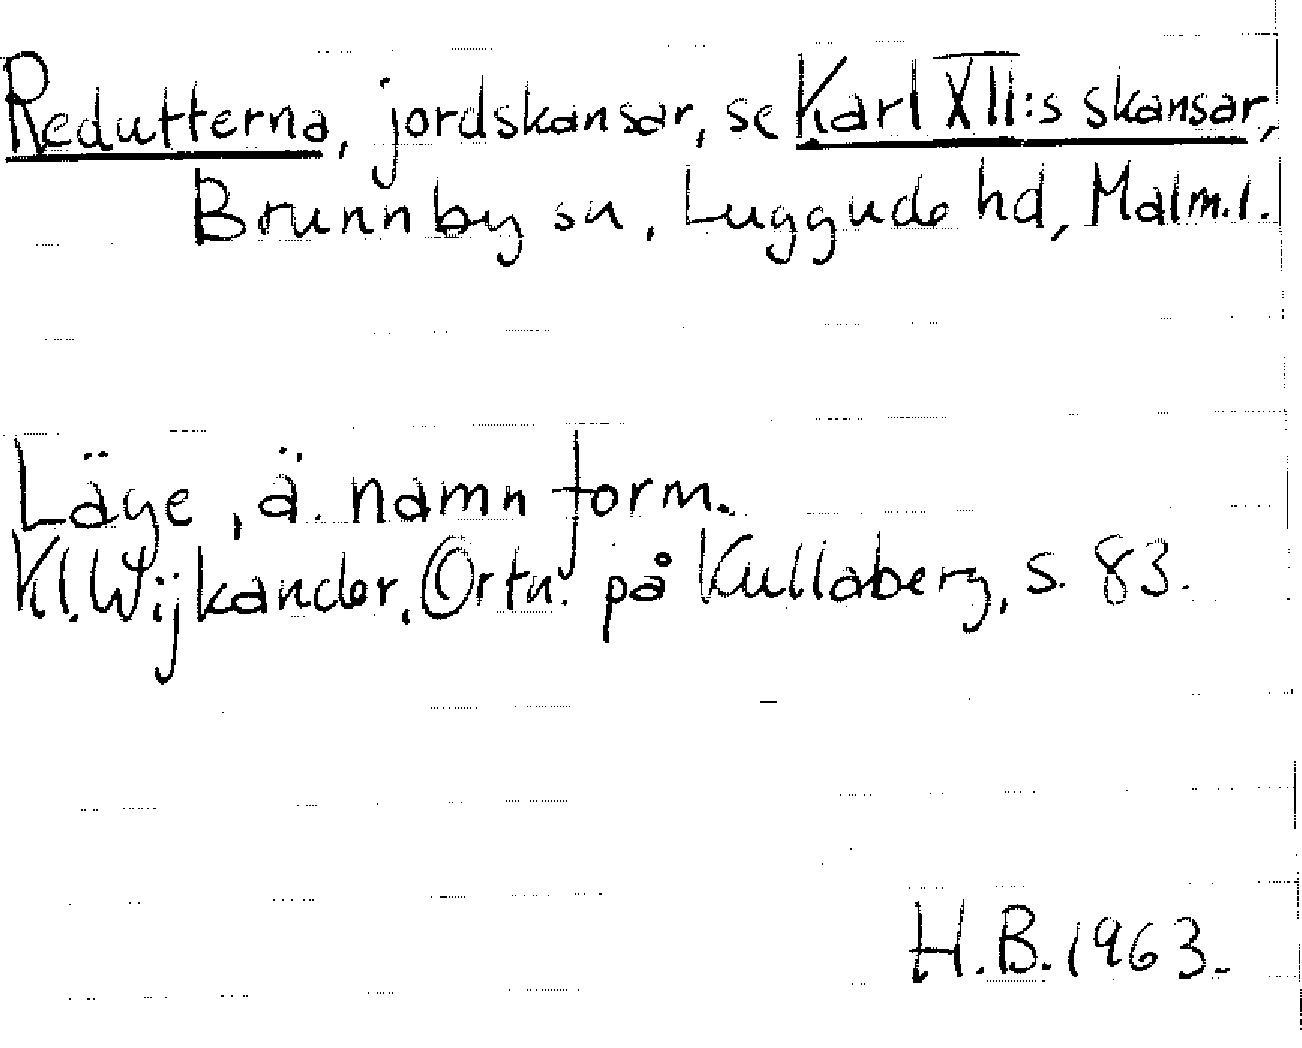 Redutterna, jordskansar, se Karl XII:s skansar,
Brunnby sn, Luggude hd, Malm.l.
Läge, ä. namnform.
Kl. Wijkander, Ortn. på Kullaberg, s. 83.
H.B. 1963.